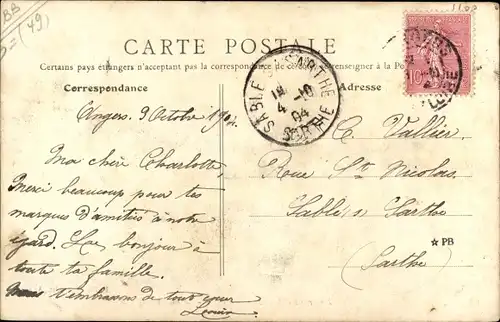 BB
(49)
CARTE POSTALE
Certains pays étrangers n'acceptant pas la correspondance de ce côté, se renseigner à la Po
Correspondance
Adresse
SABLÉ S SARTHE
4 -10
04
SARTHE
10
Angers, 9 Octobre 190
Ma chère Charlotte,
Merci beaucoup pour tes
marques d'amitiés à notre
égard. bonjour à
toute ta famille.
t'embrassons de tout cœur
C. Vallier
Rue St Nicolas
Sablé s Sarthe
(Sarthe)
☆ PB